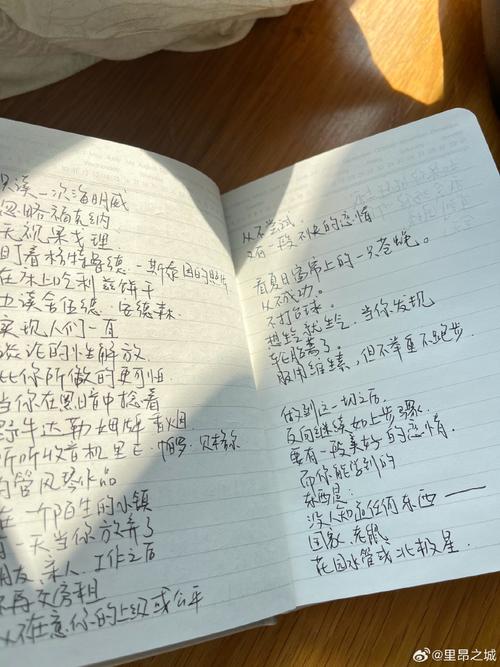 只读一次海明威
忽略福克纳
无视果戈理
盯着格特鲁德·斯泰因的照片
在床上吃利兹饼干
也读舍伍德·安德森
实现人们一直
谈论的性解放
比你所做的更可怕
当你在黑暗中捻着
牛达勒姆牌香烟
听听收音机里
的管风琴作品
在一个陌生的小镇
有一天当你放弃了
朋友、亲人、工作之后
不再交房租
从不在意你的上级或公平
从不尝试
又有一段不快的恋情
看夏日窗帘上的一只苍蝇。
从不成功。
不打台球。
想生气就生气，当你发现
车胎蔫了。
服用维生素，但不举重不跑步
做到这一切之后，
反向继续如上步骤。
要有一段美好的恋情。
而你能学到的
东西是：
没人知道任何东西——
国家，老鼠
花园水管或北极星。
@里昂之城